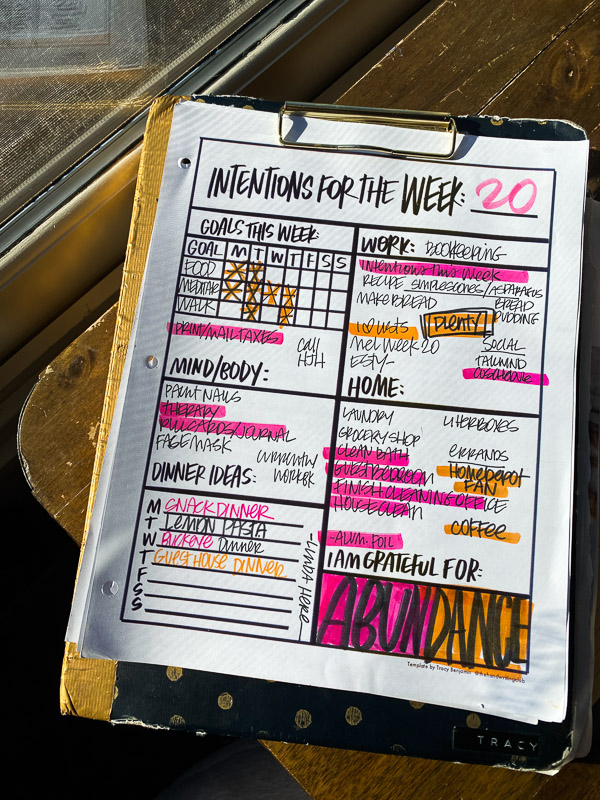 INTENTIONS FOR THE WEEK: 20
GOALS THIS WEEK:
GOAL M T W T F S S
FOOD
MEDITATE
WALK
PRINT/MAIL TAXES
CALL
HJH
WORK: BOOKKEEPING
INTENTIONS THIS WEEK
RECIPE SIMPLE SCONES/ASPARAGUS
MAKE BREAD
BREAD
PUDDING
I ♡ LISTS
PLENTY
MEL WEEK 20
SOCIAL
TAILWIND
MIND/BODY:
PAINT NAILS
THERAPY
RULE CARDS/JOURNAL
FACE MASK
CURRENTLY
WORKBK
HOME:
LAUNDRY
LITTERBOXES
GROCERY SHOP
CLEAN BATH
ERRANDS
GUEST BEDROOM
HOME DEPOT
FAN
FINISH CLEANING OFFICE
HOUSE CLEAN
COFFEE
-ALUM. FOIL
DINNER IDEAS:
M SNACK DINNER
T LEMON PASTA
W BUCKEYE DINNER
T GUEST HOUSE DINNER
F
S
S
-LINDA HERE
I AM GRATEFUL FOR:
ABUNDANCE
Template by Tracy Benjamin @thehandwritingclub
TRACY